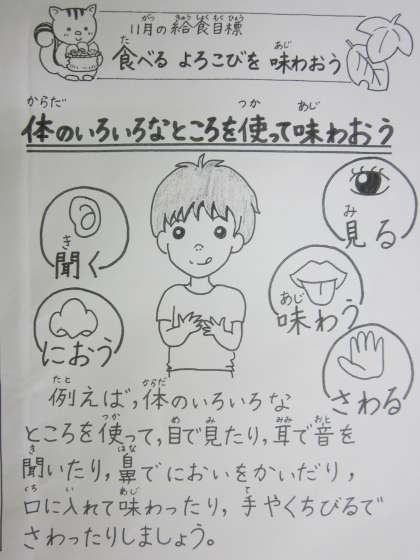 11月の給食目標
食べる よろこびを 味わおう
体のいろいろなところを使って味わおう
聞く
見る
味わう
におう
さわる
例えば,体のいろいろな
ところを使って,目で見たり,耳で音を
聞いたり,鼻でにおいをかいだり,
口に入れて味わったり,手やくちびるで
さわったりしましょう。